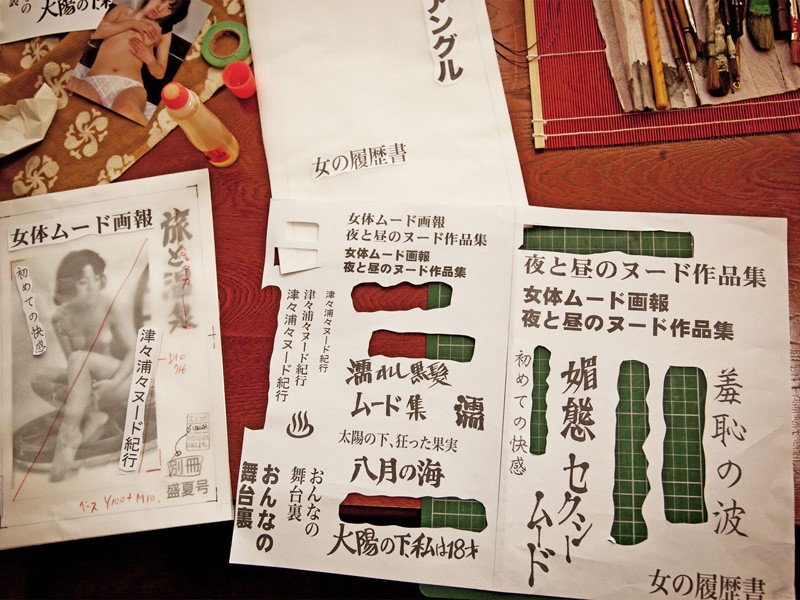 の
太陽の下私
アングル
女の履歴書
女体ムード画報
旅と
初めての快感
津々浦々ヌード紀行
別冊
盛夏号
ベース Y100+M10
女体ムード画報
夜と昼のヌード作品集
女体ムード画報
夜と昼のヌード作品集
津々浦々ヌード紀行
津々浦々ヌード紀行
津々浦々ヌード紀行
濡れし黒髪
ムード集
濡
太陽の下、狂った果実
八月の海
おんなの
舞台裏
おんなの
舞台裏
太陽の下、私は18才
夜と昼のヌード作品集
女体ムード画報
夜と昼のヌード作品集
初めての快感
媚態
セクシームード
羞恥の波
女の履歴書